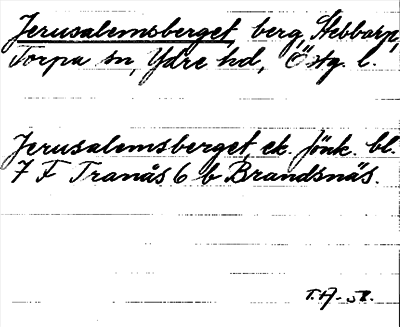 Jerusalemsberget, berg, Stebbarp,
Torpa sn, Ydre hd, Östg. l.
Jerusalemsberget ek. Jönk. bl.
7 F Tranås 6 b Brandsnäs.
T.A. -58.